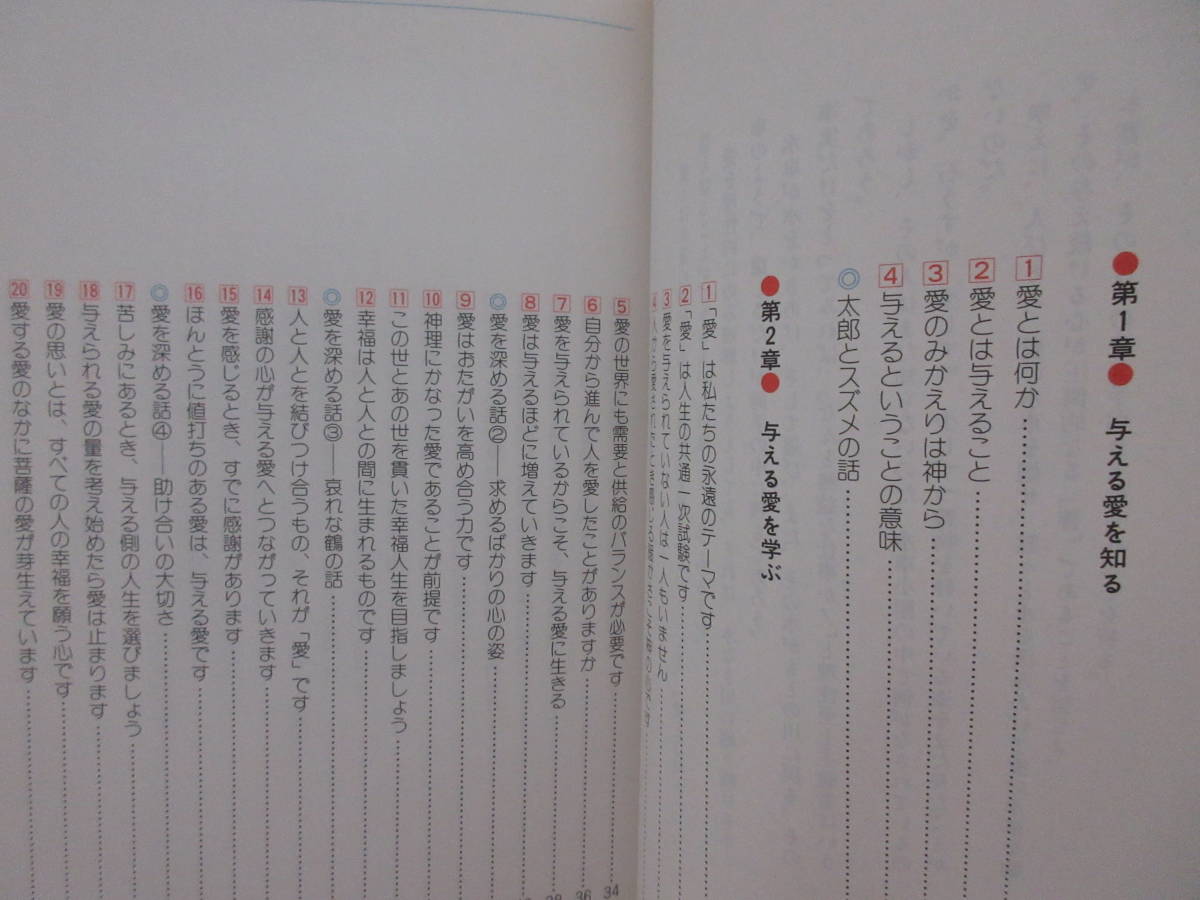 ●第1章● 与える愛を知る
1 愛とは何か
2 愛とは与えること
3 愛のみかえりは神から
4 与えるということの意味
◎ 太郎とスズメの話
●第2章● 与える愛を学ぶ
1 「愛」は私たちの永遠のテーマです
2 「愛」は人生の共通一次試験です
3 愛を与えられていない人は一人もいません
4 人から愛された
5 愛の世界にも需要と供給のバランスが必要です 34
6 自分から進んで人を愛したことがありますか 36
7 愛を与えられているからこそ、与える愛に生きる
8 愛は与えるほどに増えていきます
◎ 愛を深める話②——求めるばかりの心の姿
9 愛はおたがいを高め合う力です
10 神理にかなった愛であることが前提です
11 この世とあの世を貫いた幸福人生を目指しましょう
12 幸福は人と人との間に生まれるものです
◎ 愛を深める話③——哀れな鶴の話
13 人と人とを結びつけ合うもの、それが「愛」です
14 感謝の心が与える愛へとつながっていきます
15 愛を感じるとき、すでに感謝があります
16 ほんとうに値打ちのある愛は、与える愛です
◎ 愛を深める話④——助け合いの大切さ
17 苦しみにあるとき、与える側の人生を選びましょう
18 与えられる愛の量を考え始めたら愛は止まります
19 愛の思いとは、すべての人の幸福を願う心です
20 愛する愛のなかに菩薩の愛が芽生えています